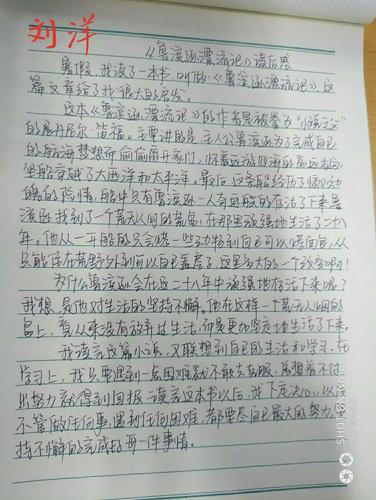 刘洋
《鲁滨逊漂流记》读后感
暑假,我读了一本书,叫做《鲁滨逊漂流记》这
篇文章给了我很大的启发。
这本《鲁滨逊漂流记》的作者是被誉为"小说之父"
的丹尼尔·笛福。主要讲的是:主人公鲁滨逊为了完成自己
的航海梦想而偷偷离开家们,怀着远游四海的高远志向,
坐船穿越了大西洋和太平洋。最后,这条船经历了惊心动
魄的险情,船中只有鲁滨逊一人奇迹般的存活了下来鲁
滨逊找到了个荒无人间的荒岛,在那里顽强地生活了二十八
年。他从一开始的只会烤一些动物到自己可以烤面包,从
只能住在荒野外到可以自己盖房子,这是多大的一个改变啊!
为什么鲁滨逊会在这二十八年中顽强地存活下来呢?
我想是他对生活的坚持不懈。他在这样一个荒无人烟的
岛上,看从来没有放弃过生活,而是更加坚定地生活了下来。
我读完这篇小说,又联想到自己的生活和学习,在
学习上,我只要遇到一点困难就不敢去克服,总想着不付
出努力就得到回报。读完这本书以后,我下定决心,以后
不管做任何事,遇到任何困难,都要尽自己最大的努力,坚
持不懈的完成好每一件事情。
SHOT ON